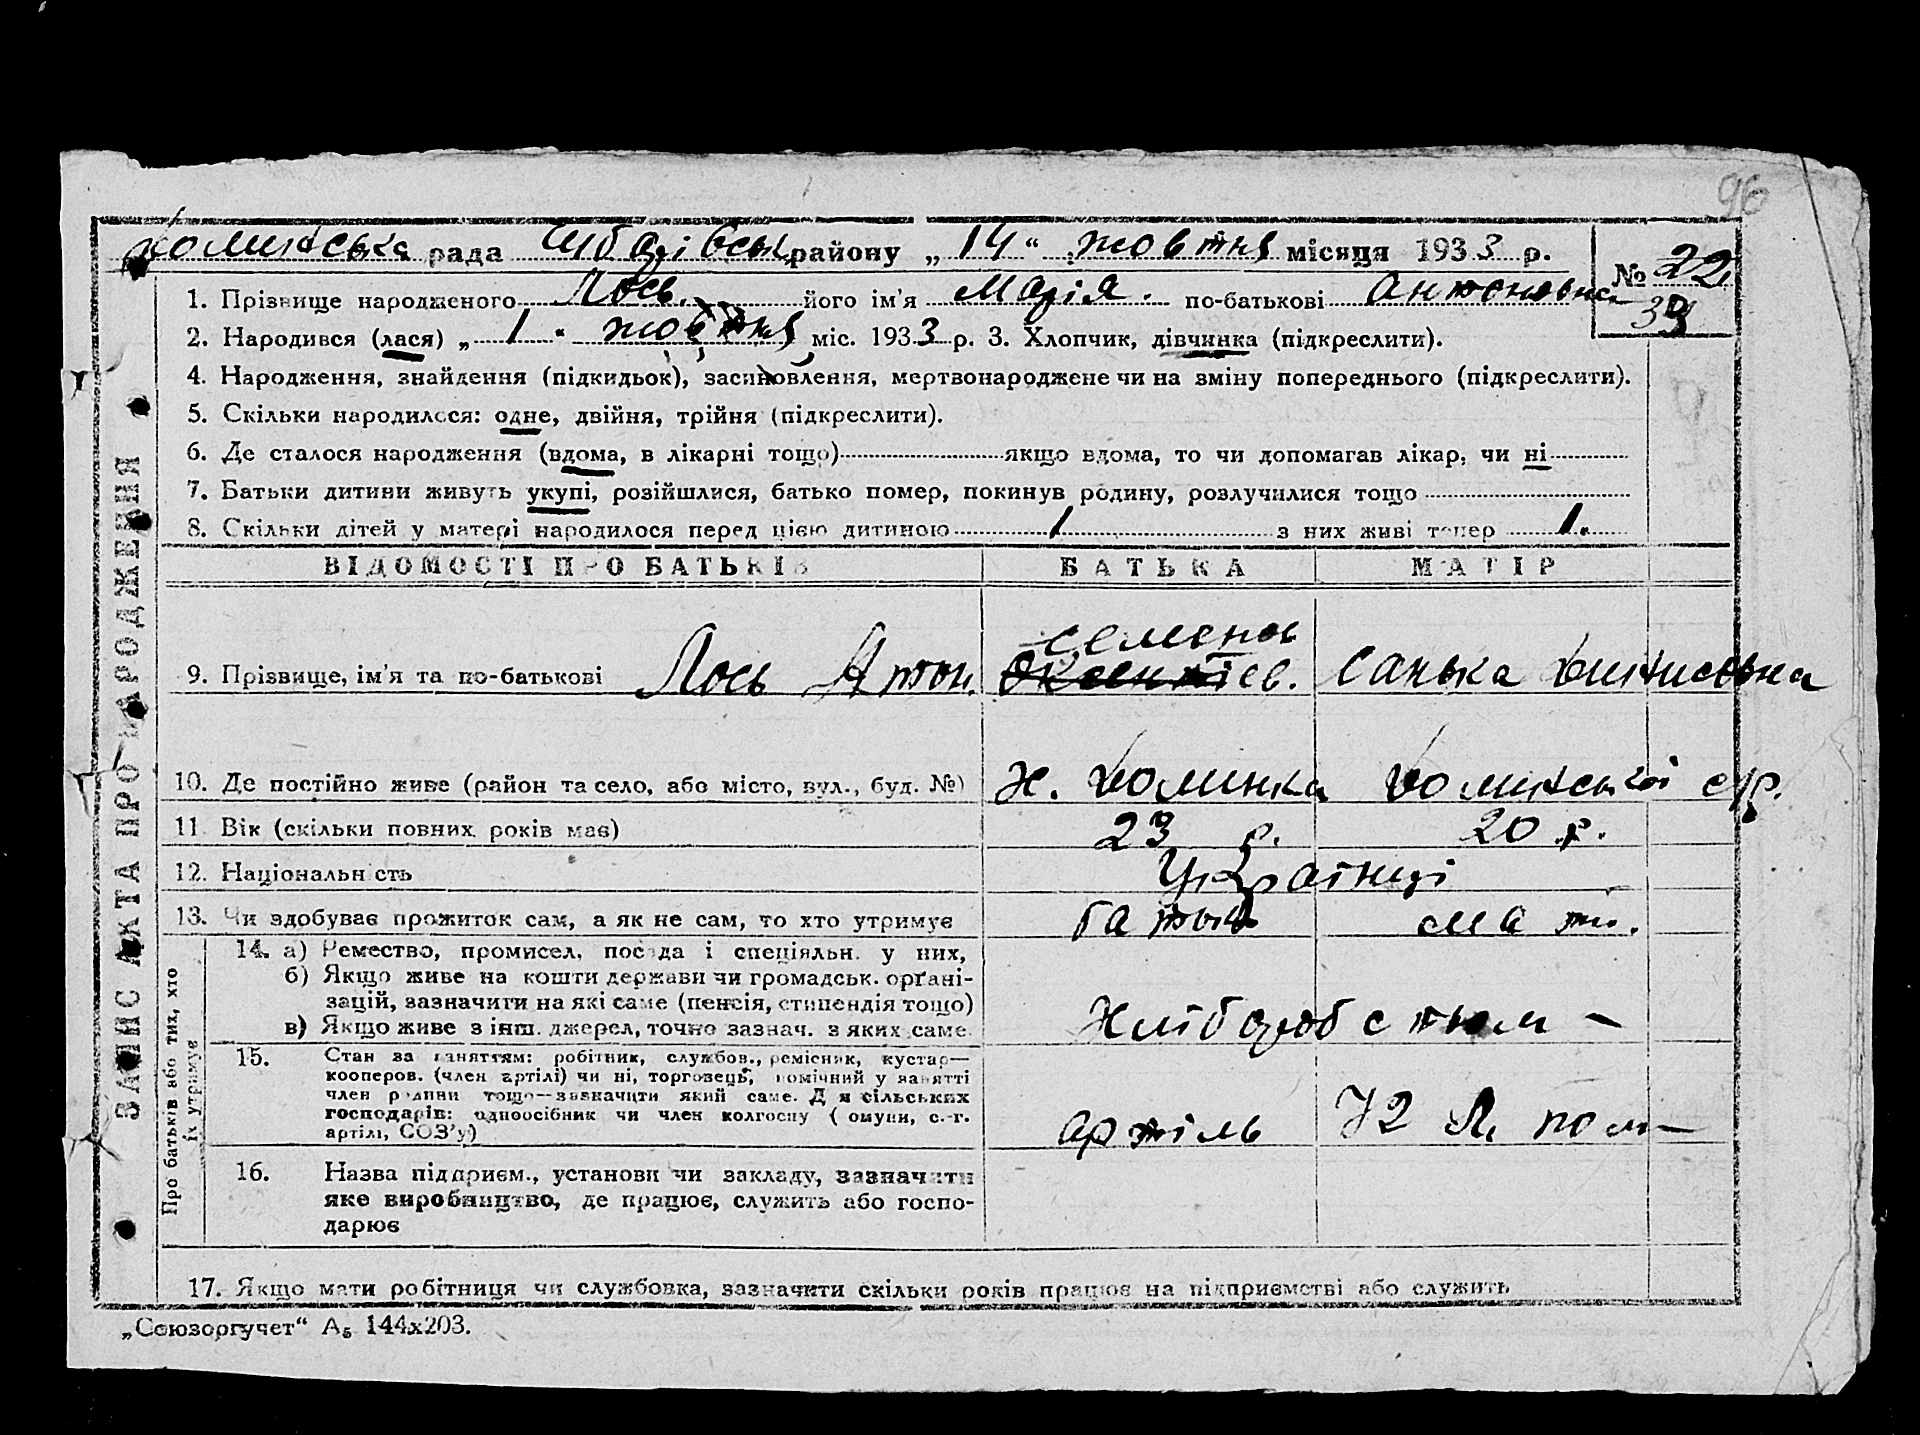 96
рада району „14“ жовтня місяця 1933 р.
№ 22
1. Прізвище народженого Лось його ім'я Марія. по-батькові Антоновна
33
2. Народився (лася) „1“ жовтня міс. 1933 р. 3. Хлопчик, дівчинка (підкреслити).
4. Народження, знайдення (підкидьок), засиновлення, мертвонароджене чи на зміну попереднього (підкреслити).
5. Скільки народилося: одне, двійня, трійня (підкреслити).
6. Де сталося народження (вдома, в лікарні тощо) якщо вдома, то чи допомагав лікар, чи ні
7. Батьки дитини живуть укупі, розійшлися, батько помер, покинув родину, розлучилися тощо
8. Скільки дітей у матері народилося перед цією дитиною 1 з них живі тепер 1.
ЗАПИС АКТА ПРО НАРОДЖЕННЯ
ВІДОМОСТІ ПРО БАТЬКІВ БАТЬКА МАТІР
Семенов
9. Прізвище, ім'я та по-батькові Лось Антон. Санька
10. Де постійно живе (район та село, або місто, вул., буд. №) Х.
11. Вік (скільки повних років має) 23 р. 20 р.
12. Національність Українці
13. Чи здобуває прожиток сам, а як не сам, то хто утримує батько мати.
Про батьків або тих, хто їх утримує
14. а) Ремество, промисел, посада і спеціяльн. у них,
б) Якщо живе на кошти держави чи громадськ. орґані-
зацій, зазначити на які саме (пенсія, стипендія тощо)
в) Якщо живе з інш. джерел, точно зазнач. з яких саме Хліборобством –
15. Стан за заняттям: робітник, службов., ремісник, кустар—
кооперов. (член артілі) чи ні, торговець, помічний у занятті
член родини тощо—зазначити який саме. Для сільських
господарів: одноосібник чи член колгоспу (комуни, с.-г.
артілі, СОЗ'у) артіль
16. Назва підприєм., установи чи закладу, зазначити
яке виробництво, де працює, служить або госпо-
дарює
17. Якщо мати робітниця чи службовка, зазначити скільки років працює на підприємстві або служить
„Союзоргучет“ А₅ 144х203.